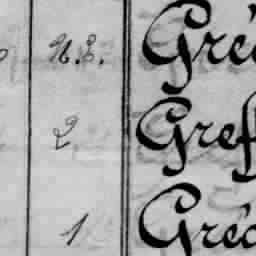 N.E. Gré
2 Gref
1 Gré